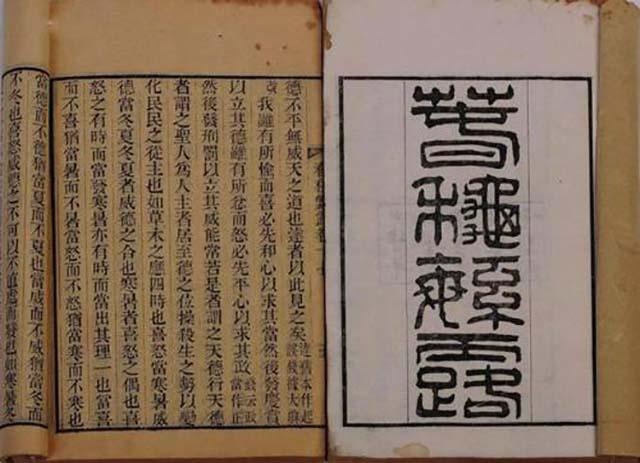 春秋繁露
德不平無威天之道也達者以此見之矣
我雖有所愉而喜必先和心以求其當然後發慶賞
以立其德雖有所忿而怒必先平心以求其政錢云政當作正
然後發刑罰以立其威能常若是者謂之天德行天德
者謂之聖人爲人主者居至德之位操殺生之勢以變
化民民之從主也如草木之應四時也喜怒當寒暑威
德當冬夏冬夏者威德之合也寒暑者喜怒之偶也喜
怒之有時而當發寒暑亦有時而當出其理一也當喜
而不喜猶當暑而不暑當怒而不怒猶當寒而不寒也
當德而不德猶當夏而不夏也當威而不威猶當冬而
不冬也喜怒威德之不可以不直處而發也如寒暑冬